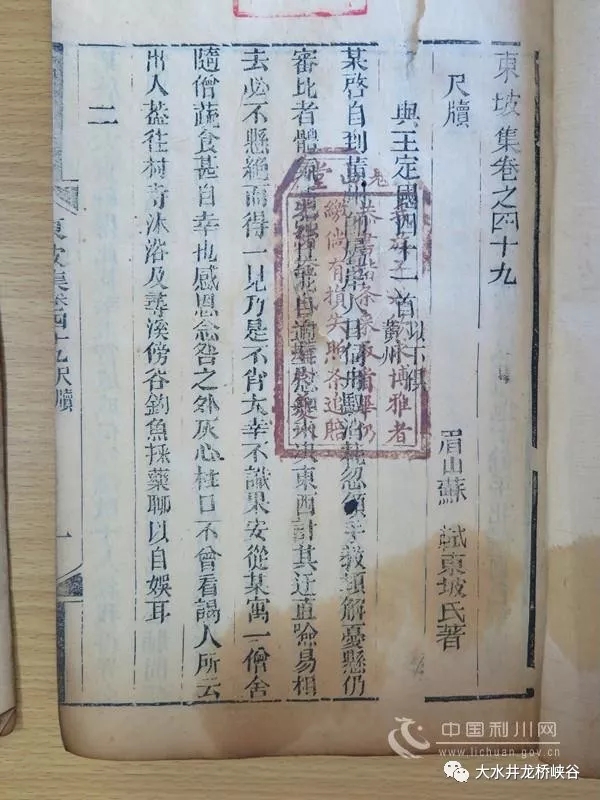 東坡集卷之四十九
眉山蘇 軾東坡氏著
尺牘
與王定國四十一首以下俱黃州
某啓自到黃州即屬岸人日伺舟馭消耗忽領手教頓解憂懸仍
審比者體 東西計其迂直喻易相
去必不懸絶而得一見乃是不肖大幸不識果安從某寓一僧舍
隨僧蔬食甚自幸也感恩念咎之外灰心杜口不曾看謁人所云
出入蓋往村寺沐浴及尋溪傍谷釣魚採藥聊以自娛耳
二
東坡集卷四十九尺牘
一
博雅者
倘有損失 追賠
中国利川网
www.lichuan.gov.cn
大水井龙桥峡谷